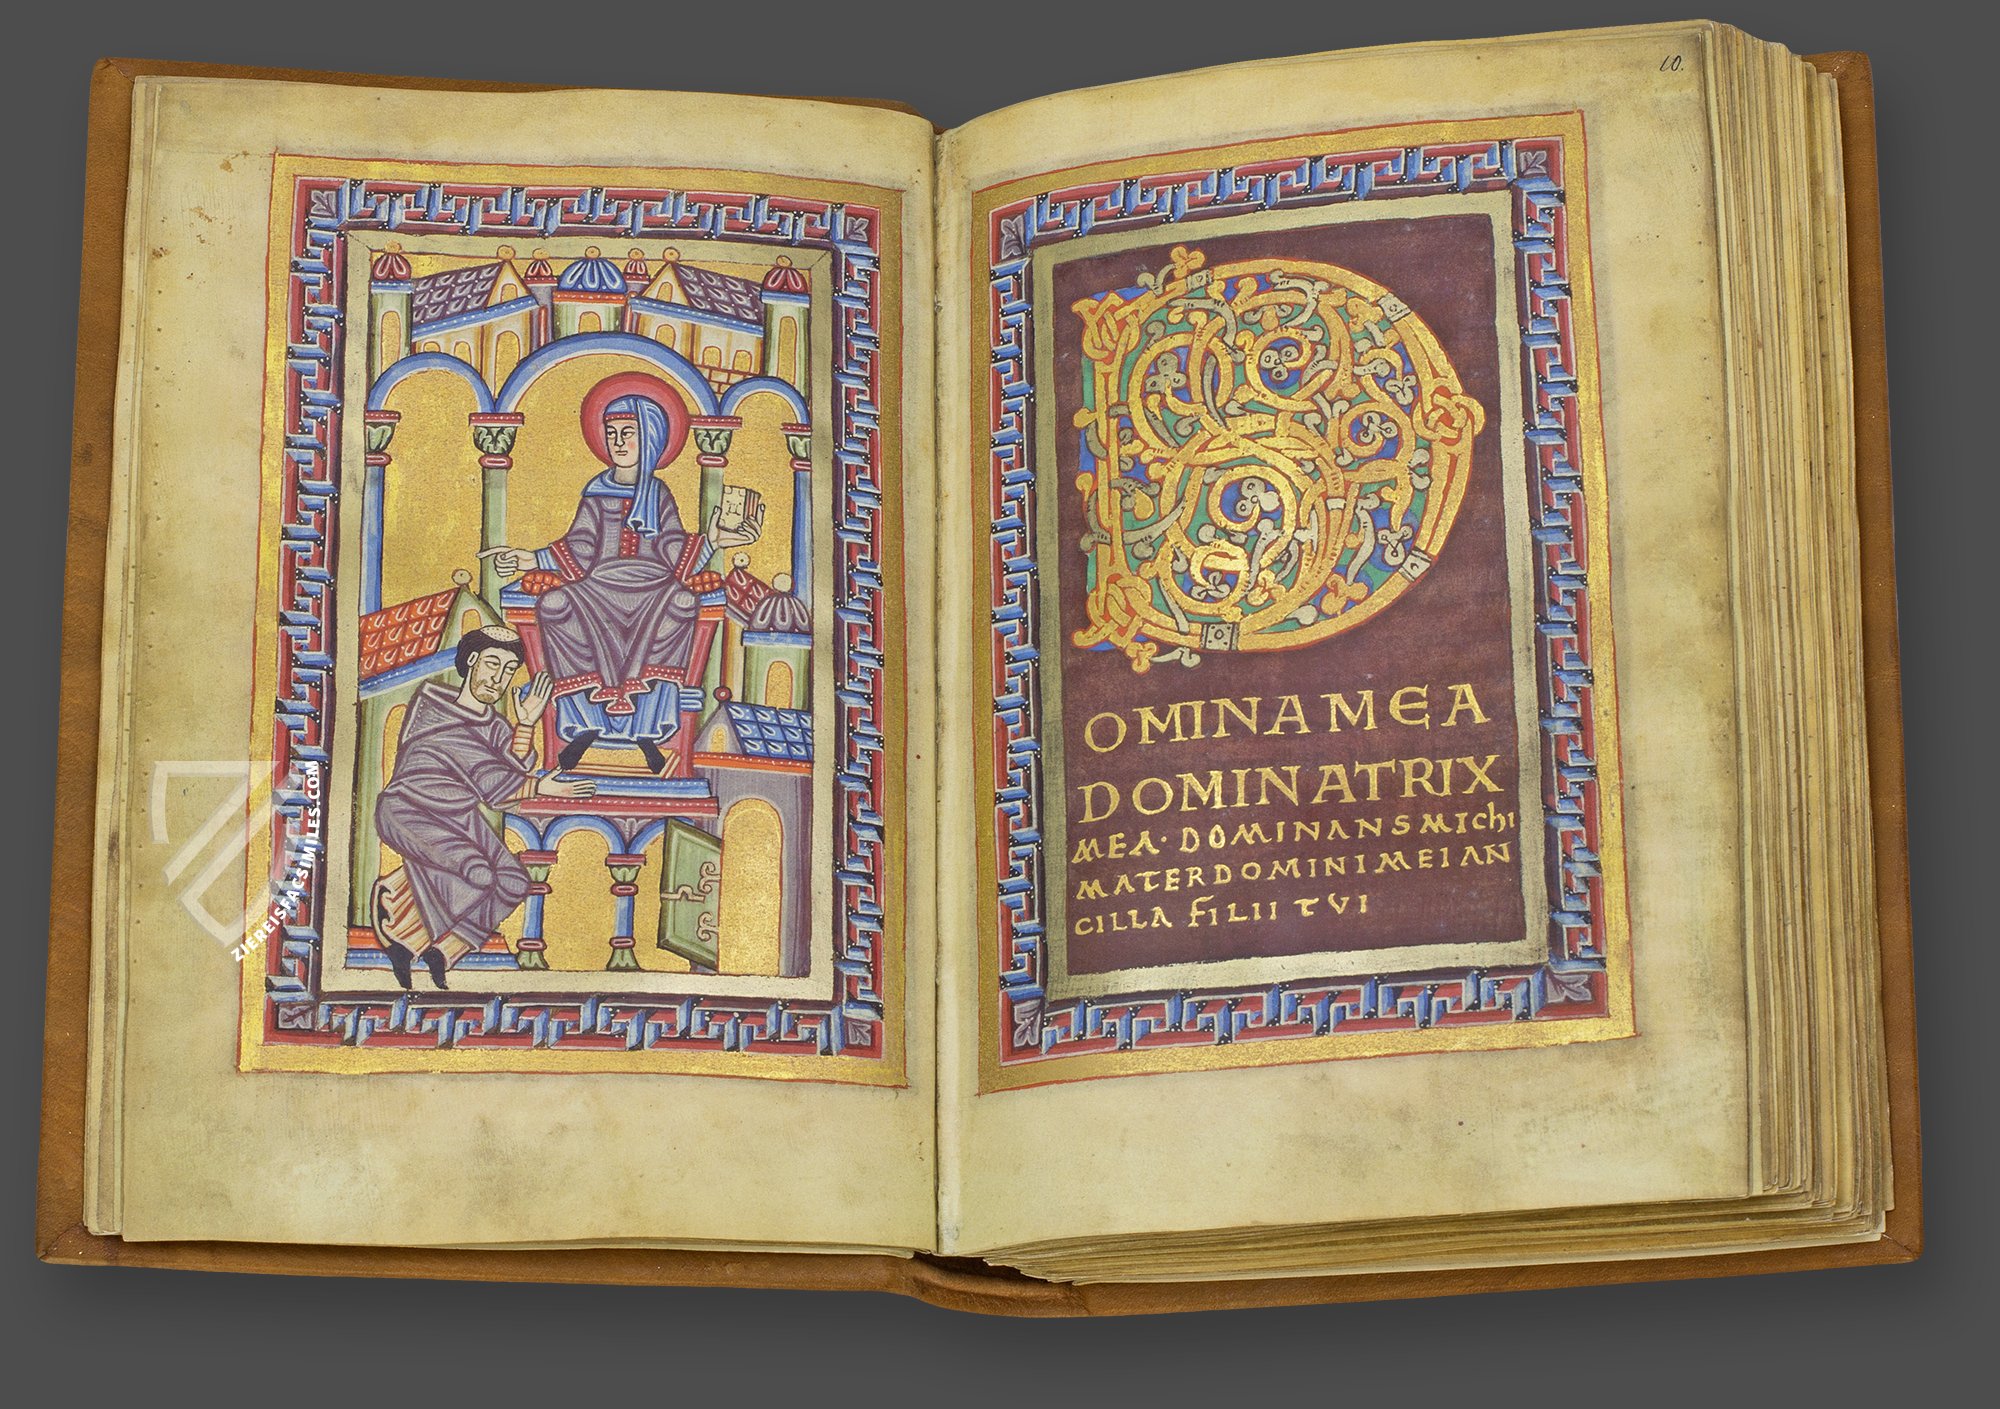 10.
D
OMINA MEA
DOMINATRIX
MEA · DOMINANS MIChI
MATER DOMINI MEI AN
CILLA FILII TVI
ZIEREISFACSIMILES.COM